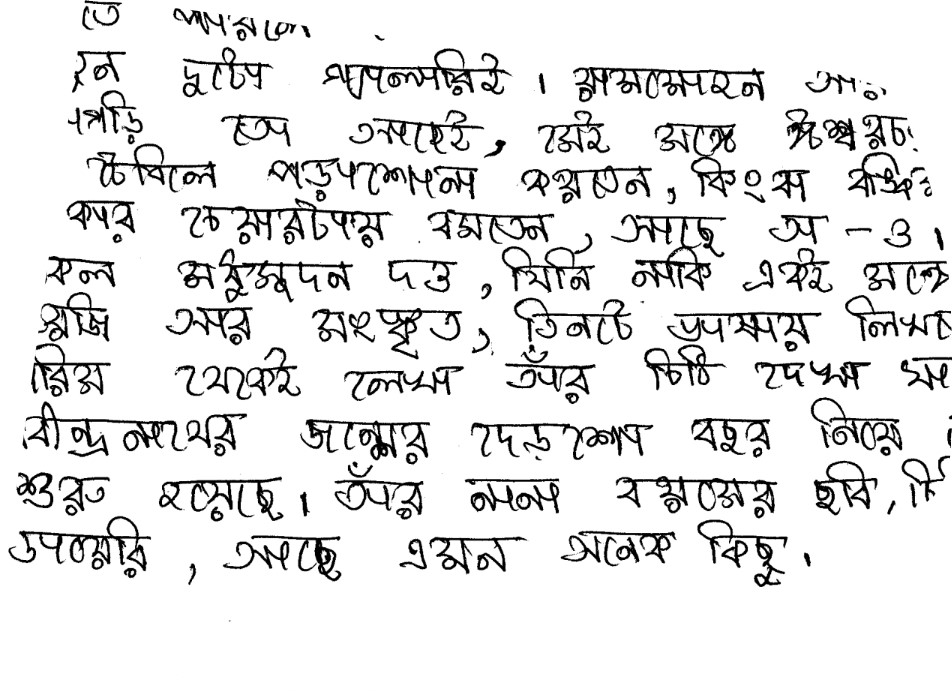 তে পারলে।
হন দুটো গ্যালারিই। রামমোহন আর
পাড়ি তো আছেই, সেই সঙ্গে ঈশ্বরচ
টেবিলে পড়াশোনা করতেন, কিংবা বঙ্কি
কার চেয়ারটায় বসতেন, আছে তা-ও।
কল মধুসূদন দত্ত, যিনি নাকি একই সঙ্গে
রাজি আর সংস্কৃত, তিনটে ভাষায় লিখতে
রিস থেকেই লেখা তাঁর চিঠি দেখা যা
বীন্দ্রনাথের জন্মের দেড়শো বছর নিয়ে
শুরু হয়েছে। তাঁর নানা বয়সের ছবি, চি
ডায়েরি, আছে এমন অনেক কিছু।